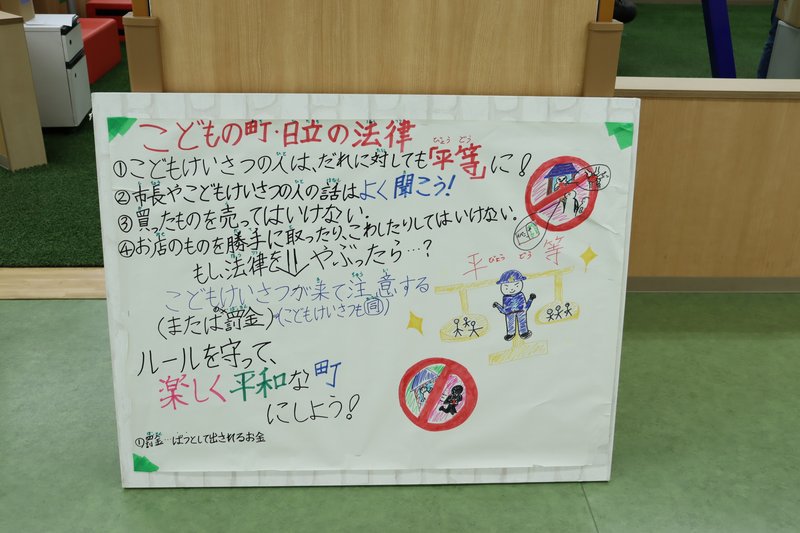 こどもの町・日立の法律
①こどもけいさつの人は、だれに対しても「平等」に!
②市長やこどもけいさつの人の話はよく聞こう!
③買ったものを売ってはいけない.
④お店のものを勝手に取ったり、こわしたりしてはいけない.
もし、法律をやぶったら…?
こどもけいさつが来て注意する
(または罰金)(こどもけいさつも同)
ルールを守って、
楽しく平和な町
にしよう!
①罰金…ばつとして出されるお金
平等
びょう どう